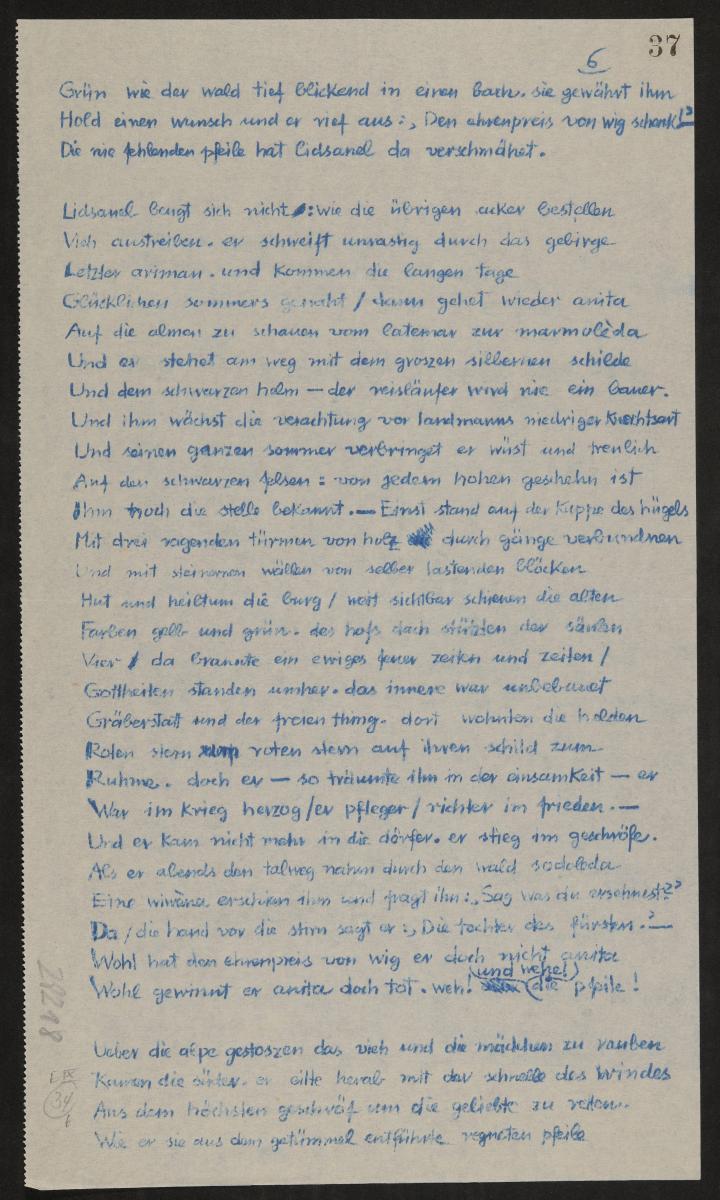 37
6
Grün wie der wald tief blickend in einen bach. sie gewährt ihm
Hold einen wunsch und er rief aus: „Den ehrenpreis von wig schenk!"
Die nie fehlenden pfeile hat Lidsanel da verschmähet.
Lidsanel beugt sich nicht: wie die übrigen acker bestellen
Vieh austreiben. er schweift unrastig durch das gebirge
Letzter ariman. und kommen die langen tage
Glücklichen sommers genaht / dann gehet wieder anita
Auf die almen zu schauen vom latemar zur marmolèda
Und er stehet am weg mit dem groszen silbernen schilde
Und dem schwarzen helm — der reisläufer wird nie ein bauer.
Und ihm wächst die verachtung vor landmanns niedriger knechtsart
Und seinen ganzen sommer verbringet er wüst und treulich
Auf den schwarzen felsen: von jedem hohen geschehn ist
Ihm noch die stelle bekannt. — Einst stand auf der kuppe des hügels
Mit drei ragenden türmen von holz durch gänge verbundnen
Und mit steinernen wällen von selber lastenden blöcken
Hut und heiltum die burg / weit sichtbar schienen die alten
Farben gelb und grün. des hofs dach stützten der säulen
Vier / da brannte ein ewiges feuer zeiten und zeiten /
Gottheiten standen umher. das innere war unbebauet
Gräberstatt und der freien thing. dort wohnten die helden
Roten stern roten stern auf ihren schild zum
Ruhme. doch er — so träumte ihm in der einsamkeit — er
War im krieg herzog / er pfleger / richter im frieden. —
Und er kam nicht mehr in die dörfer. er stieg im geschröfe.
Als er abends den talweg nahm durch den wald sodoleda
Eine wiwäna erschien ihm und fragt ihn: „Sag was du ersehnest?"
Da / die hand vor die stirn sagt er: „Die tochter des fürsten." —
Wohl hat den ehrenpreis von wig er doch nicht anita
(und wehe!)
Wohl gewinnt er anita doch tot. weh! die pfeile!
Ueber die alpe gestoszen das vieh und die mädchen zu rauben
Kamen die er eilte herab mit der schnelle des windes
Aus dem höchsten geschröf um die geliebte zu retten.
Wie er sie aus dem getümmel entführte regneten pfeile